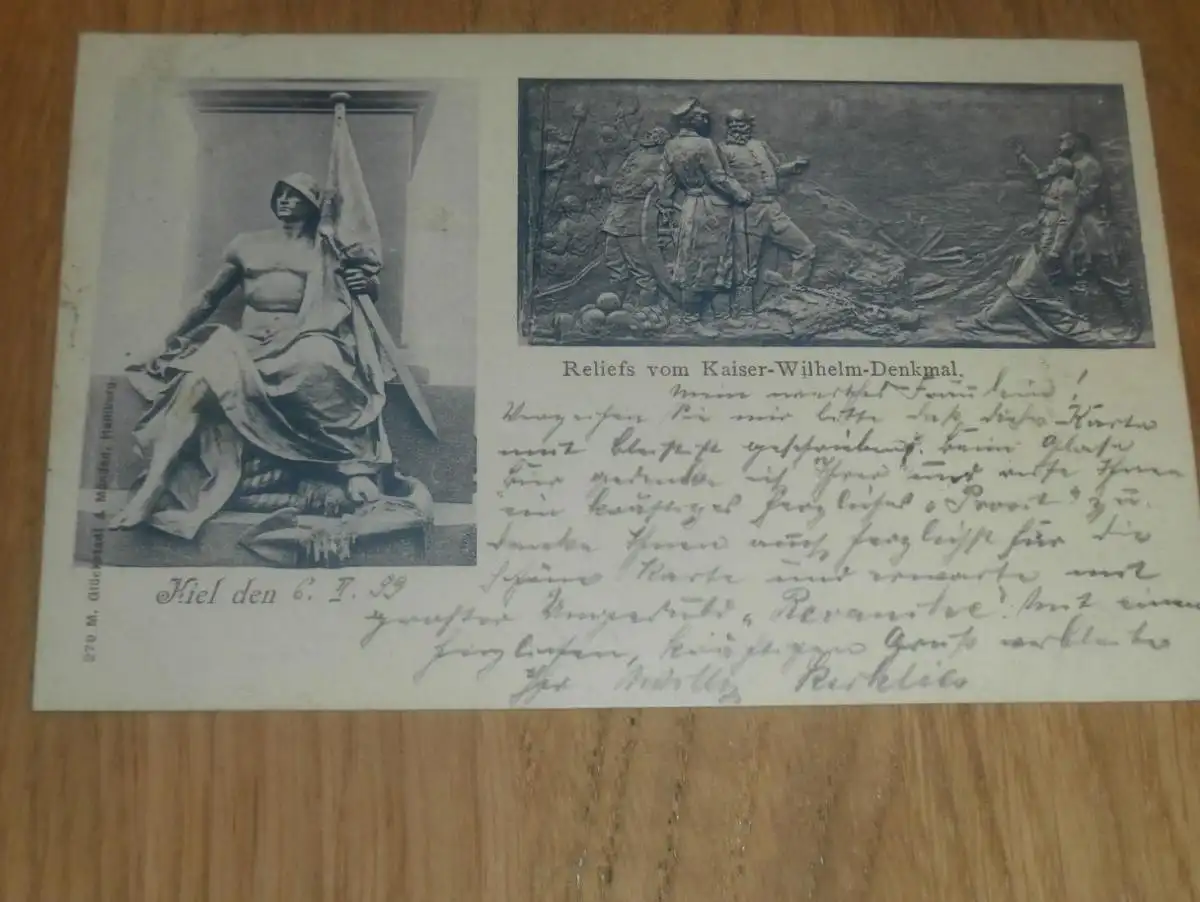 Reliefs vom Kaiser-Wilhelm-Denkmal.
Mein wertes Fräulein!
Verzeihen Sie mir bitte daß diese Karte
mit Bleistift geschrieben. Beim Glase
Bier gedenke ich Ihrer und rufe Ihnen
ein kräftiges herzliches „Prosit" zu.
danke Ihnen auch herzlichst für die
schöne Karte und erwarte mit
großer Ungeduld „Revanche". Mit einem
herzlichen, kräftigen Gruß verbleibe
Ihr Willy
Kiel den 6. II. 99
270 M. Glückstadt & Münden, Hamburg.